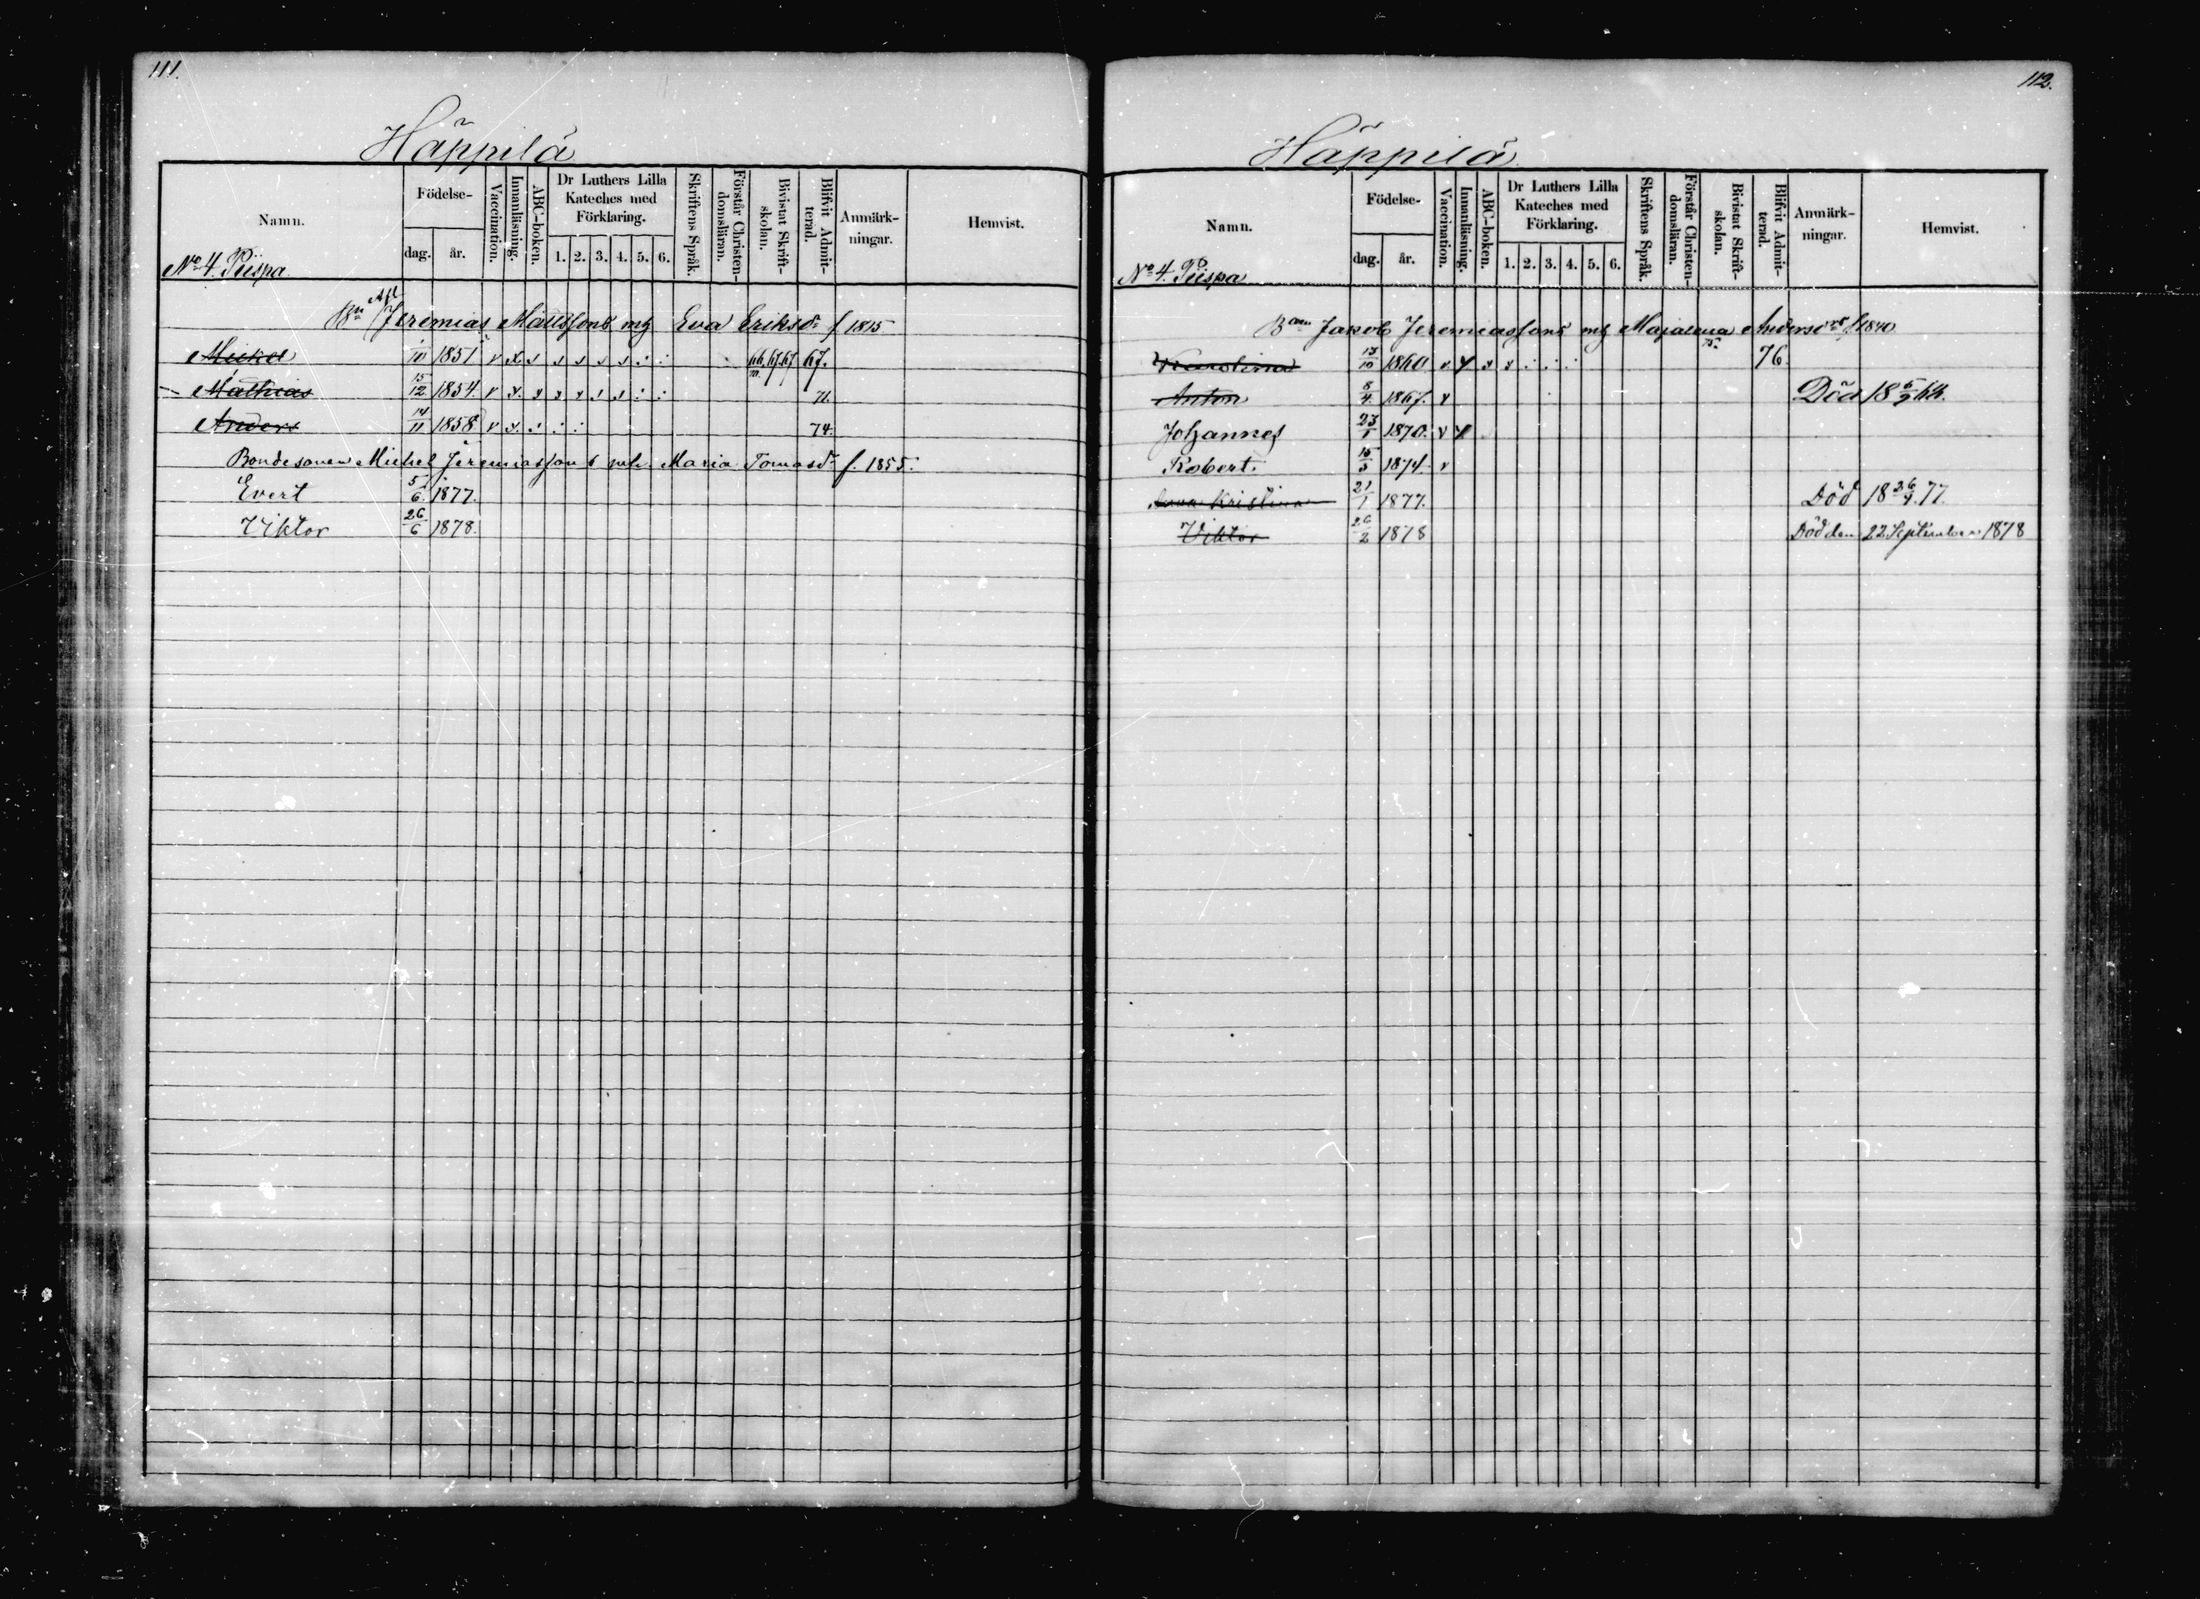 111.
Häppilä
Namn.
Födelse-
dag.
år.
Vaccination.
Innanläsning.
ABC-boken.
Dr Luthers Lilla
Kateches med
Förklaring.
1. 2. 3. 4. 5. 6.
Skriftens Språk.
Förstår Christen-
domsläran.
Bivistat Skrift-
skolan.
Blifvit Admit-
terad.
Anmärk-
ningar.
Hemvist.
No 4. Piispa
Bn Afl Jeremias Mattssons mh Eva Eriksdr f 1815
Mickel 1/10 1851 v x. s s s s s : : 66. 67. 67 67.
Mathias 15/12 1854. v x. s s s s s : : 71.
Anders 14/11 1858 v x. : : : 74.
Bondesonen Michel Jeremiasson s mh. Maria Tomasdr f. 1855.
Evert 5/6 1877.
Viktor 26/6 1878.
112.
Häppilä
Namn.
Födelse-
dag.
år.
Vaccination.
Innanläsning.
ABC-boken.
Dr Luthers Lilla
Kateches med
Förklaring.
1. 2. 3. 4. 5. 6.
Skriftens Språk.
Förstår Christen-
domsläran.
Bivistat Skrift-
skolan.
Blifvit Admit-
terad.
Anmärk-
ningar.
Hemvist.
No 4. Piispa
Jakob Jeremiassons mh Majalena Andersdr f 1840
Karolina 13/10 1860 v x s s : : : 75. 76
Anton 8/4 1867. v Död
Johannes 23/1 1870. v x
Robert. 15/5 1874. v
Kristina 21/1 1877. Död 18 26/4 77.
Viktor 26/2 1878 Död den 22 September 1878